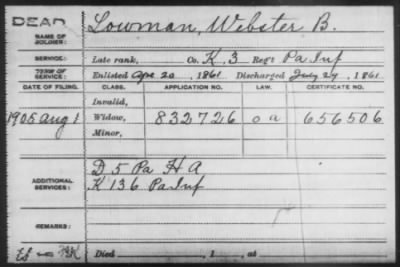 DEAD Lowman, Webster B.
NAME OF SOLDIER:
SERVICE: Late rank, Co. K. 3 Reg't Pa Inf
TERM OF SERVICE: Enlisted Apr 20, 1861 Discharged July 29, 1861
DATE OF FILING. CLASS. APPLICATION NO. LAW. CERTIFICATE NO.
Invalid,
1905 Aug 1 Widow, 832726 o a 656506
Minor,
D 5 Pa H A
ADDITIONAL SERVICES: K 136 Pa Inf
REMARKS:
Died , 1 , at